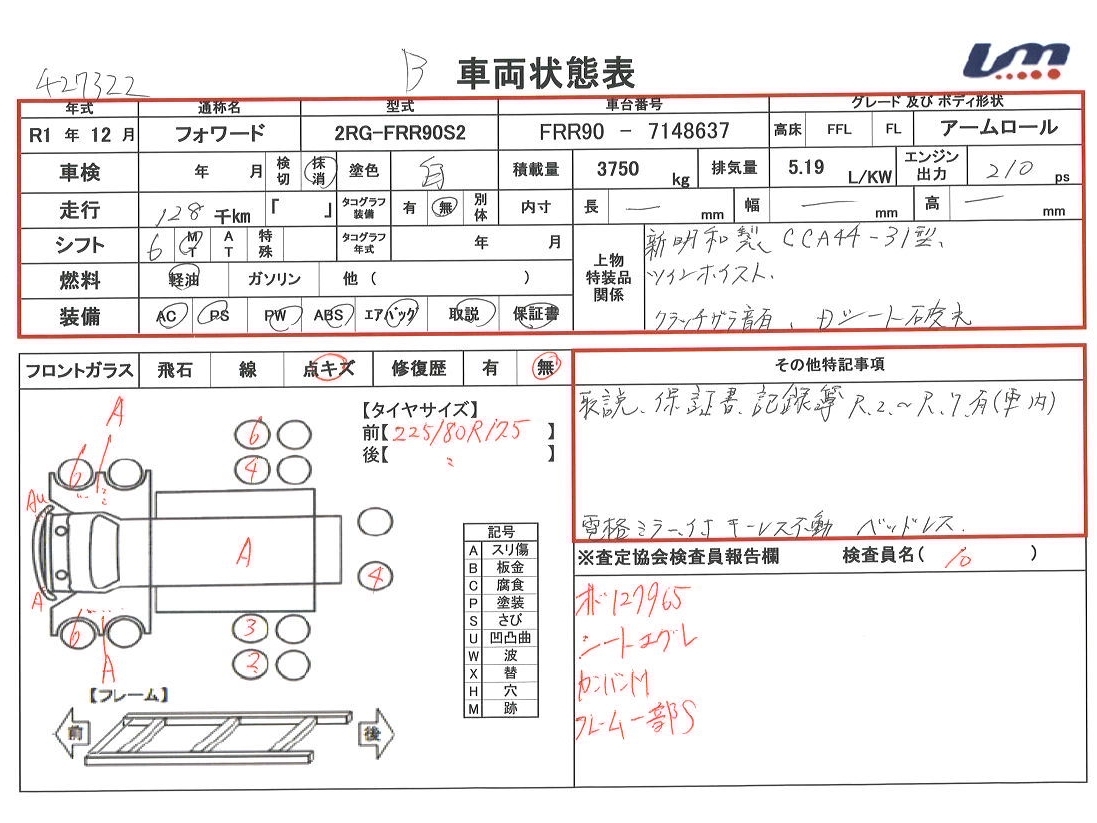 427322 B 車両状態表 um
年式 通称名 型式 車台番号 グレード 及び ボディ形状
R1 年 12 月 フォワード 2RG-FRR90S2 FRR90 － 7148637 高床 FFL FL アームロール
車検 年 月 検切 抹消 塗色 積載量 3750 kg 排気量 5.19 L/KW エンジン出力 210 ps
走行 128 千km 「 」 タコグラフ装備 有 無 別体 内寸 長 — mm 幅 — mm 高 — mm
シフト 6 MT AT 特殊 タコグラフ年式 年 月 上物特装品関係 新明和製、CCA44-31型、
ツインホイスト.
燃料 軽油 ガソリン 他 ( )
装備 AC PS PW ABS エアバッグ 取説 保証書 クラッチザラ音有、Dシート破れ
フロントガラス 飛石 線 点キズ 修復歴 有 無
その他特記事項
取説、保証書、記録簿 R.2.～R.7.有(車内)
電格ミラー付 キーレス不動 ベッドレス.
【タイヤサイズ】
前【 225/80R17.5 】
後【 〃 】
A
6
6
4
Au
A
A
4
3
6
2
A
記号
A スリ傷
B 板金
C 腐食
P 塗装
S さび
U 凹凸曲
W 波
X 替
H 穴
M 跡
【フレーム】
前 後
※査定協会検査員報告欄 検査員名( 10 )
オド127965
シートコゲレ
カンバンM
フレーム一部S